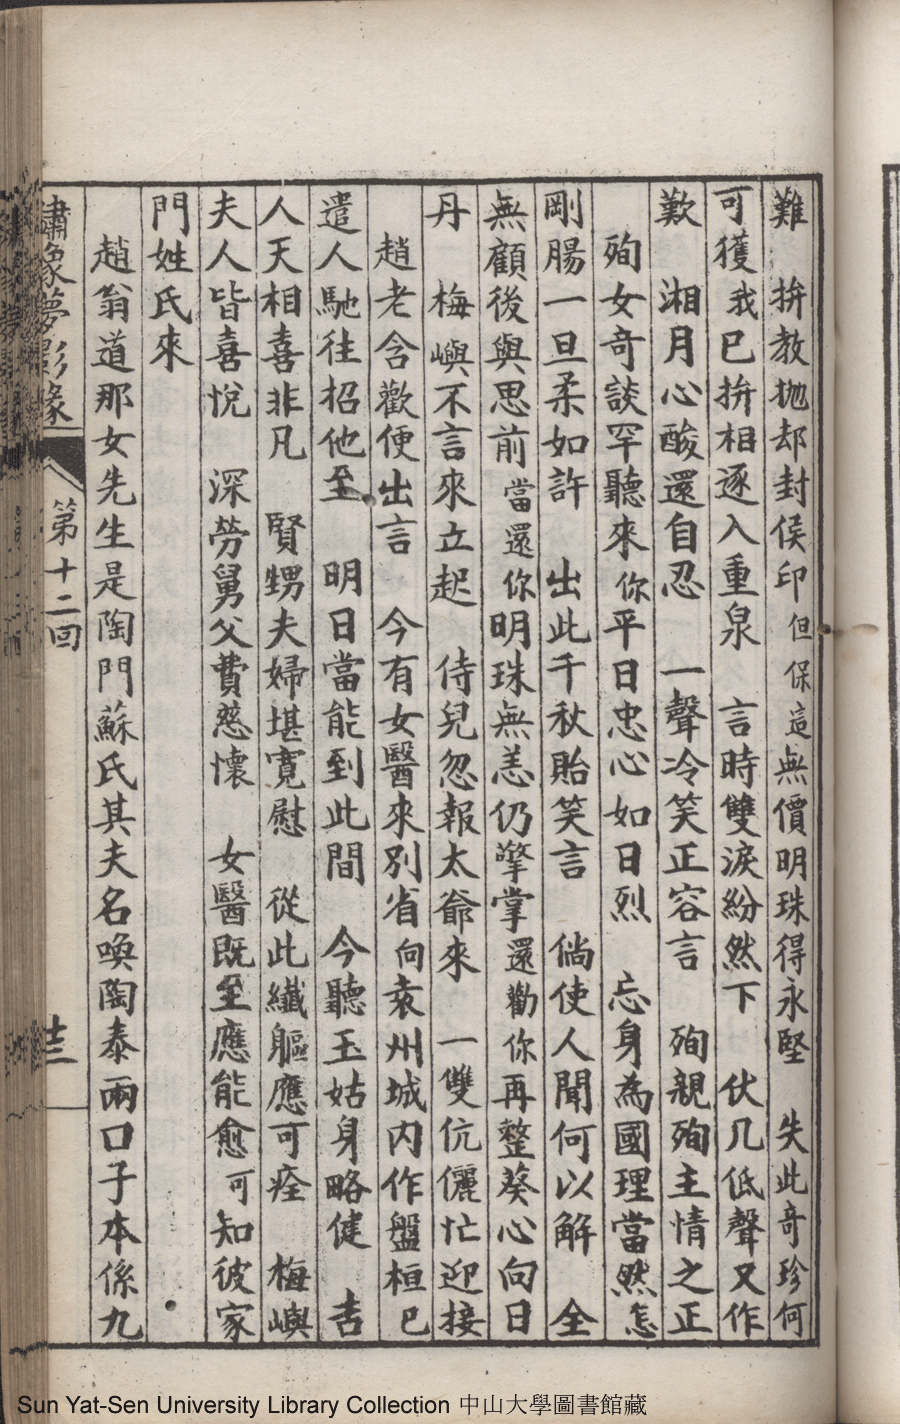 難　拚教拋却封侯印但保這無價明珠得永堅　失此奇珍何
可獲我已拚相逐入重泉　言時雙淚紛然下　伏几低聲又作
歎　湘月心酸還自忍　一聲冷笑正容言　殉親殉主情之正
殉女奇談罕聽來你平日忠心如日烈　忘身為國理當然怎
剛腸一旦柔如許　出此千秋貽笑言　倘使人聞何以解　全
無顧後與思前當還你明珠無恙仍擎掌還勸你再整葵心向日
丹　梅嶼不言來立起　侍兒忽報太爺來　一雙伉儷忙迎接
趙老含歡便出言　今有女醫來別省向袁州城內作盤桓已
遣人馳往招他至　明日當能到此間　今聽玉姑身略健　吉
人天相喜非凡　賢甥夫婦堪寬慰　從此纖軀應可痊　梅嶼
夫人皆喜悅　深勞舅父費慈懷　女醫既至應能愈可知彼家
門姓氏來
趙翁道那女先生是陶門蘇氏其夫名喚陶泰兩口子本係九
繡像夢影緣　第十二回　十三
Sun Yat-Sen University Library Collection 中山大學圖書館藏